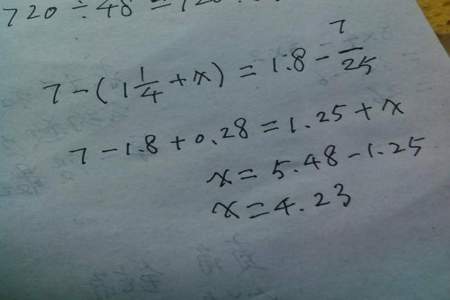 720÷48=720
7-(1 1/4+x)=1.8-7/25
7-1.8+0.28=1.25+x
x=5.48-1.25
x=4.23